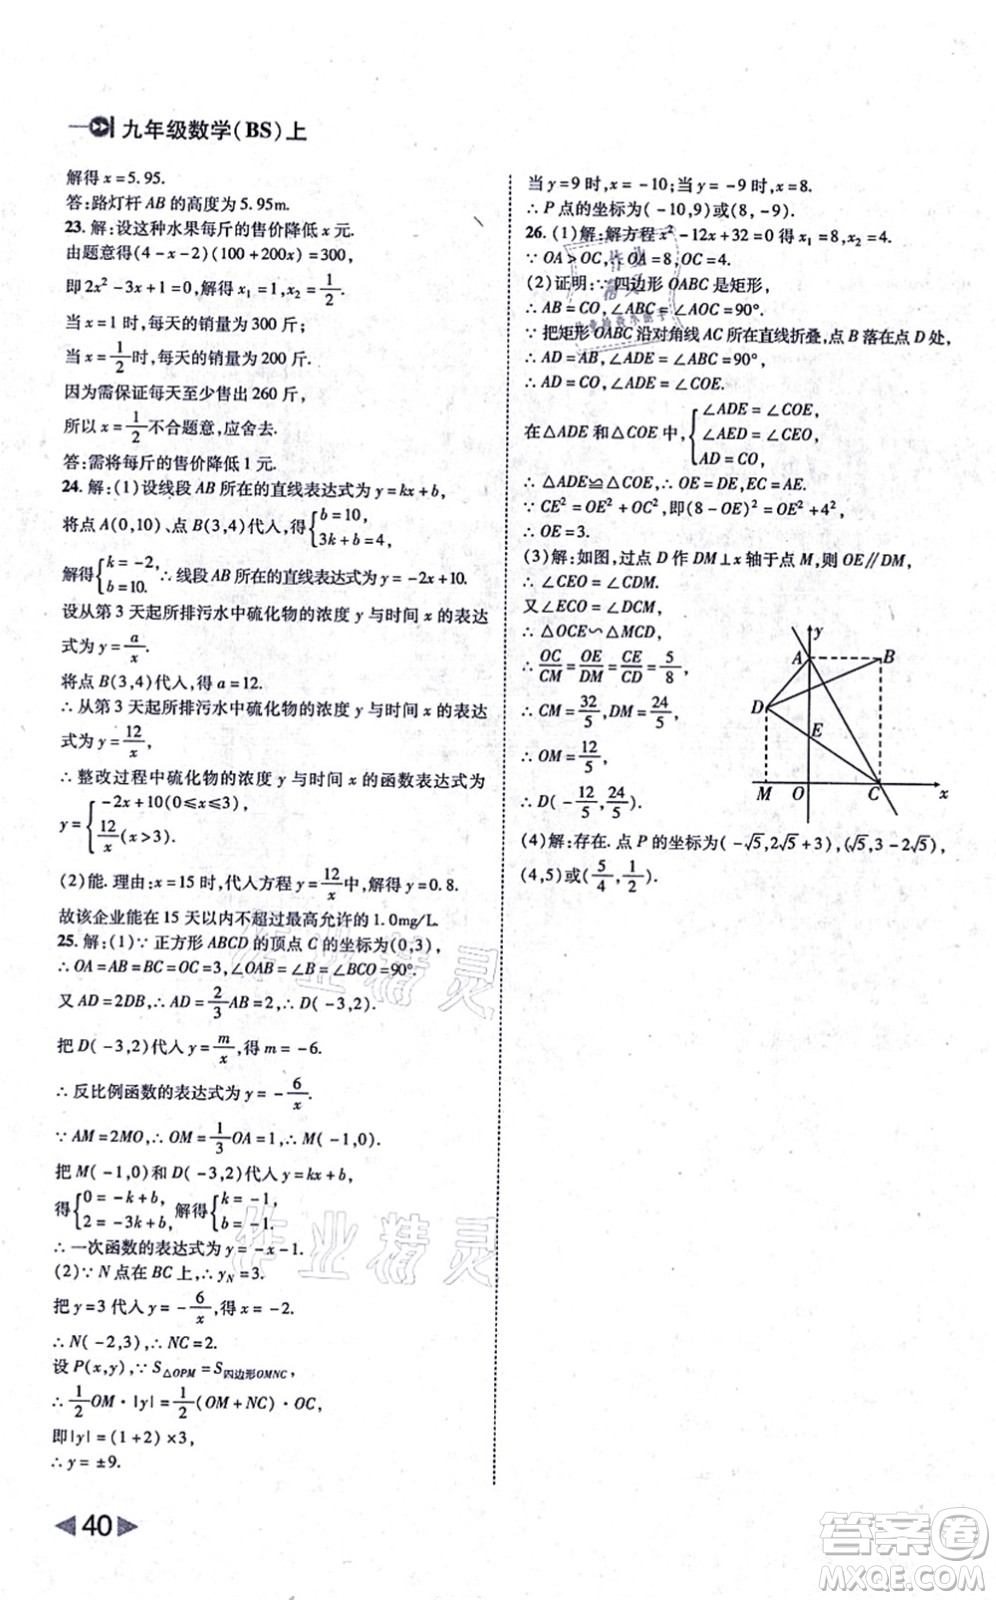 九年级数学(BS)上
解得x=5.95.
答:路灯杆AB的高度为5.95m.
23.解:设这种水果每斤的售价降低x元.
由题意得(4-x-2)(100+200x)=300,
即2x²-3x+1=0,解得x₁=1,x₂=1/2.
当x=1时,每天的销量为300斤;
当x=1/2时,每天的销量为200斤.
因为需保证每天至少售出260斤,
所以x=1/2不合题意,应舍去.
答:需将每斤的售价降低1元.
24.解:(1)设线段AB所在的直线表达式为y=kx+b,
将点A(0,10)、点B(3,4)代入,得{b=10, 3k+b=4,
解得{k=-2, b=10.∴线段AB所在的直线表达式为y=-2x+10.
设从第3天起所排污水中硫化物的浓度y与时间x的表达
式为y=a/x.
将点B(3,4)代入,得a=12.
∴从第3天起所排污水中硫化物的浓度y与时间x的表达
式为y=12/x,
∴整改过程中硫化物的浓度y与时间x的函数表达式为
y={-2x+10(0≤x≤3), 12/x(x>3).
(2)能.理由:x=15时,代入方程y=12/x中,解得y=0.8.
故该企业能在15天以内不超过最高允许的1.0mg/L.
25.解:(1)∵正方形ABCD的顶点C的坐标为(0,3),
∴OA=AB=BC=OC=3,∠OAB=∠B=∠BCO=90°.
又AD=2DB,∴AD=2/3AB=2,∴D(-3,2).
把D(-3,2)代入y=m/x,得m=-6.
∴反比例函数的表达式为y=-6/x.
∵AM=2MO,∴OM=1/3OA=1,∴M(-1,0).
把M(-1,0)和D(-3,2)代入y=kx+b,
得{0=-k+b, 2=-3k+b, 解得{k=-1, b=-1.
∴一次函数的表达式为y=-x-1.
(2)∵N点在BC上,∴yN=3.
把y=3代入y=-6/x,得x=-2.
∴N(-2,3),∴NC=2.
设P(x,y),∵S△OPM=S四边形OMNC,
∴1/2OM·|y|=1/2(OM+NC)·OC,
即|y|=(1+2)×3,
∴y=±9.
40
当y=9时,x=-10;当y=-9时,x=8.
∴P点的坐标为(-10,9)或(8,-9).
26.(1)解:解方程x²-12x+32=0得x₁=8,x₂=4.
∵OA>OC,∴OA=8,OC=4.
(2)证明:∵四边形OABC是矩形,
∴AB=CO,∠ABC=∠AOC=90°.
∵把矩形OABC沿对角线AC所在直线折叠,点B落在点D处,
∴AD=AB,∠ADE=∠ABC=90°,
∴AD=CO,∠ADE=∠COE.
在△ADE和△COE中,{∠ADE=∠COE, ∠AED=∠CEO, AD=CO,
∴△ADE≌△COE,∴CE=AE.
∵CE²=OE²+OC²,即(8-OE)²=OE²+4²,
∴OE=3.
(3)解:如图,过点D作DM⊥x轴于点M,则OE∥DM,
∴∠CEO=∠CDM.
又∠ECO=∠DCM,
∴△OCE∽△MCD,
∴OC/CM=OE/DM=CE/CD=5/8,
∴CM=32/5,DM=24/5,
∴OM=12/5,
∴D(-12/5,24/5).
y
A
B
D
E
M
O
C
x
(4)解:存在.点P的坐标为(-√5,2√5+3),(√5,3-2√5),
(4,5)或(5/4,1/2).
作业精灵
作业精灵
作业
精灵
答案圈
MXQE.COM